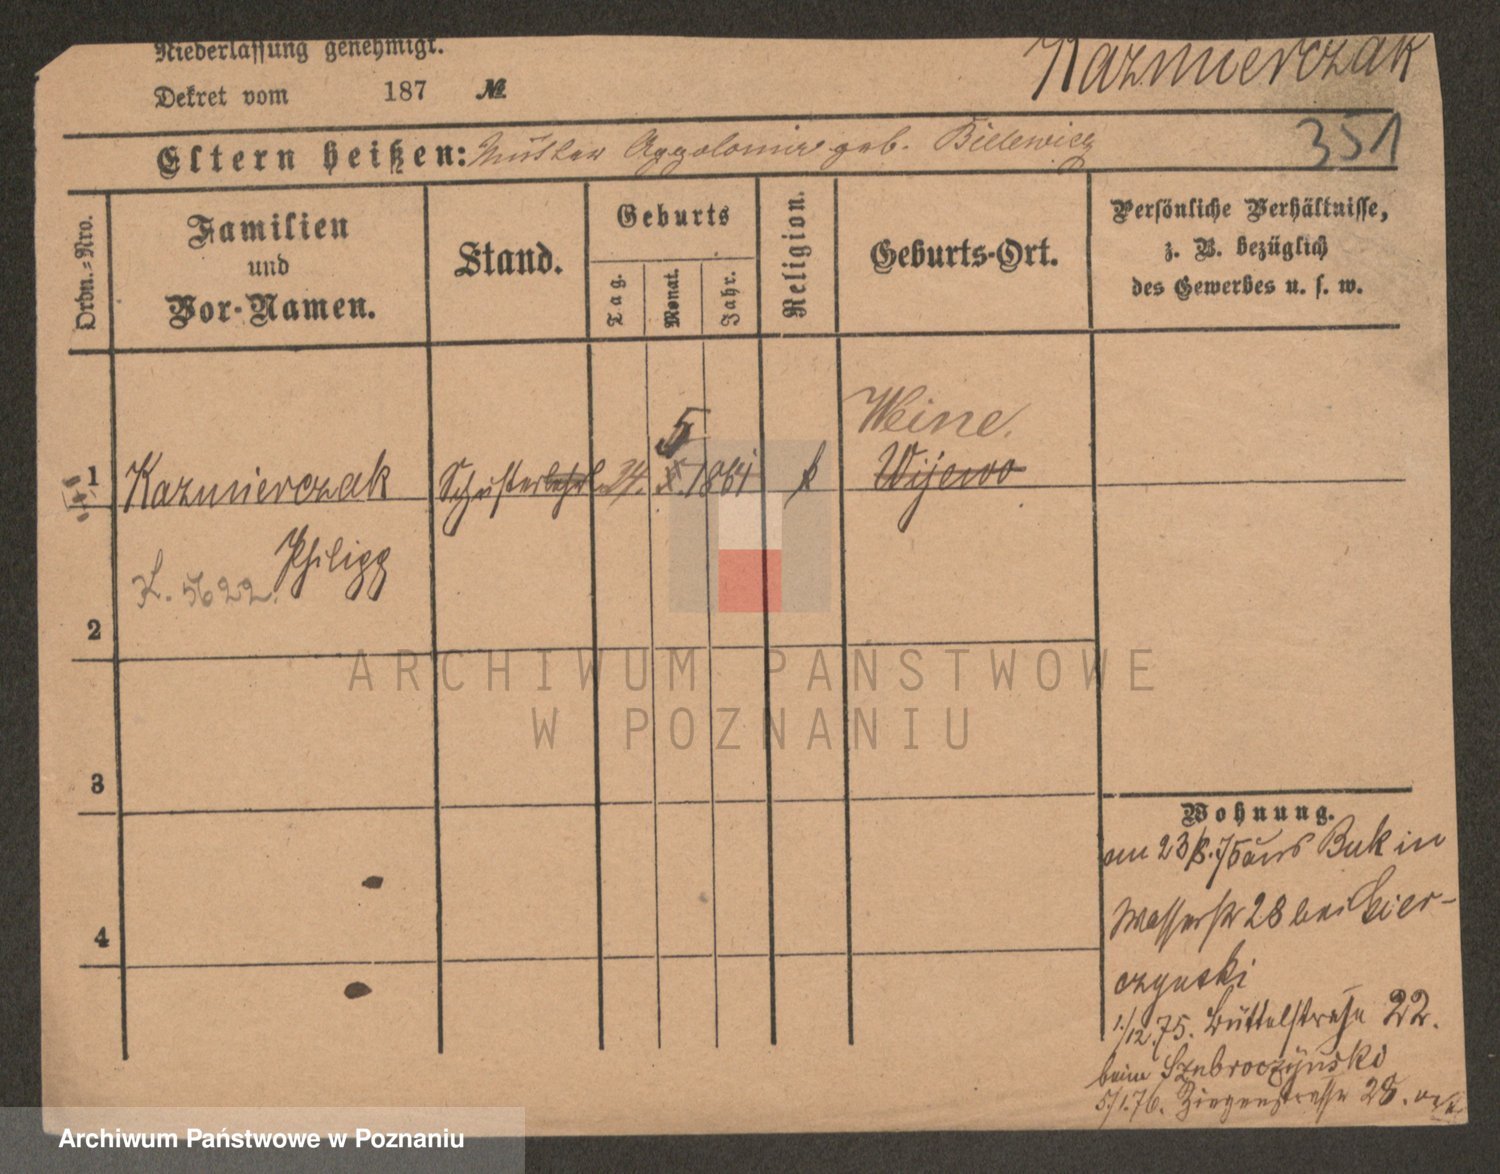 Niederlassung genehmigt.
Kazmierczak
Dekret vom 187 №
Eltern heißen: Mutter Appolonia geb. Bielewicz
351
Ordn.-Nro.
Familien
und
Vor-Namen.
Stand.
Geburts
Tag.
Monat.
Jahr.
Religion.
Geburts-Ort.
Persönliche Verhältnisse,
z. B. bezüglich
des Gewerbes u. s. w.
5
Weine.
1 Kazmierczak Schusterlehrl. 24. X. 1861 k Wijewo
Philipp
K. 5622.
2
3
4
Wohnung.
am 23/8.75 aus Buk in
Wasserstr 28 bei Gier-
czynski
1/12.75. Büttelstraße 22.
beim Szubroczynski
5/1.76. Ziegenstrasse 28.
ARCHIWUM PAŃSTWOWE
W POZNANIU
Archiwum Państwowe w Poznaniu